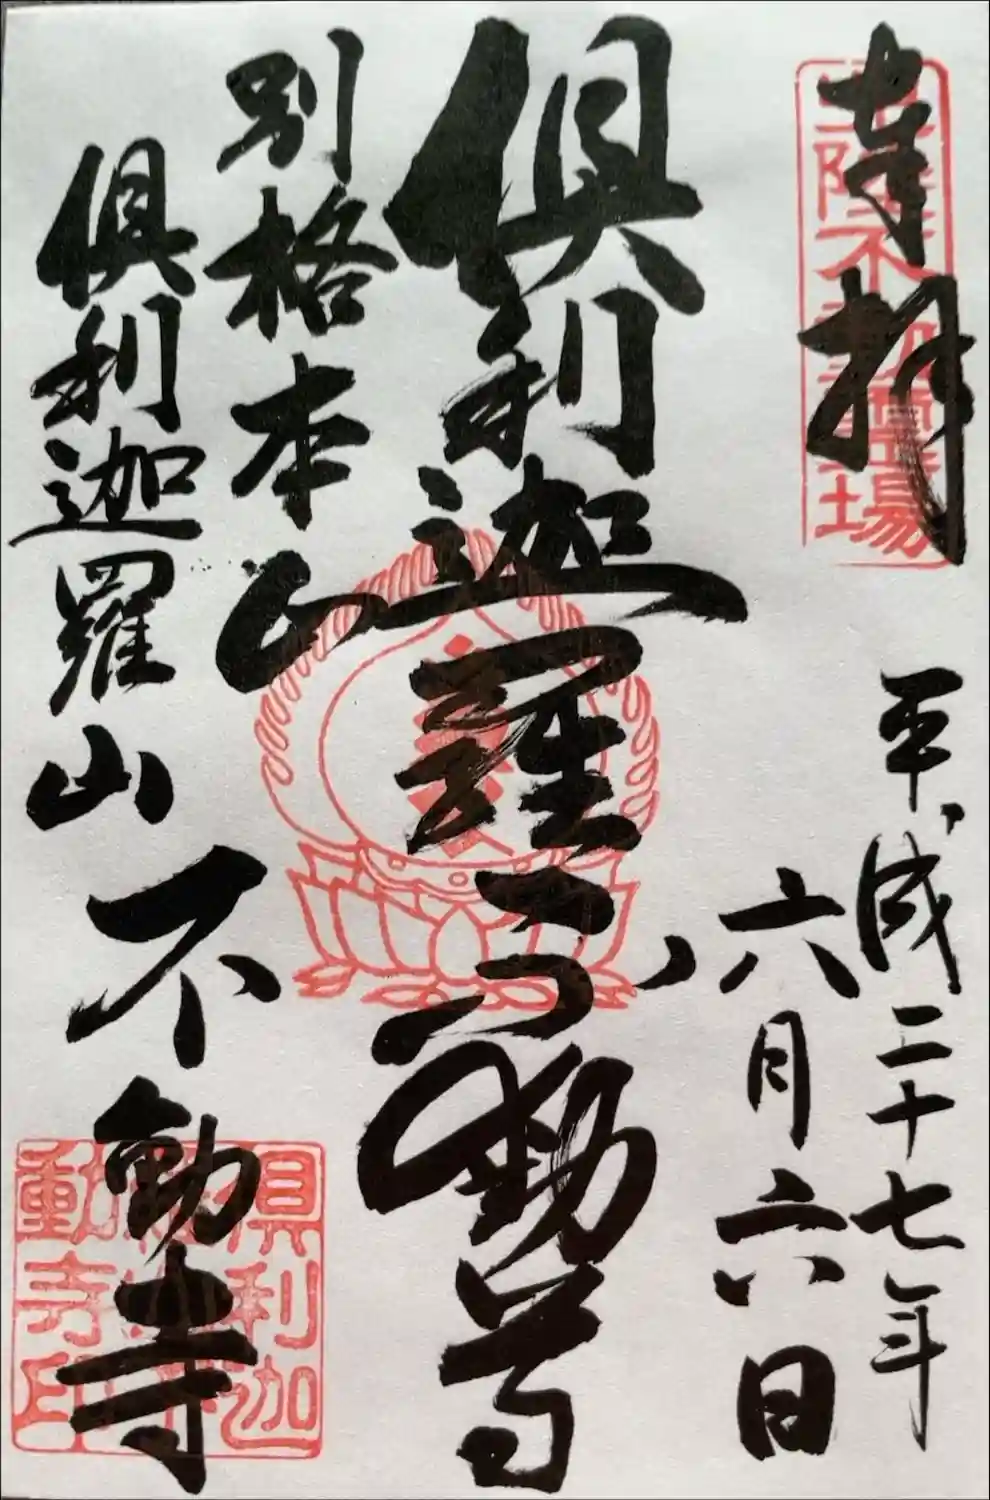 奉拝
北陸不動霊場
平成二十七年
六月六日
倶利迦羅不動尊
別格本山
倶利迦羅山不動寺
倶利迦
動寺印